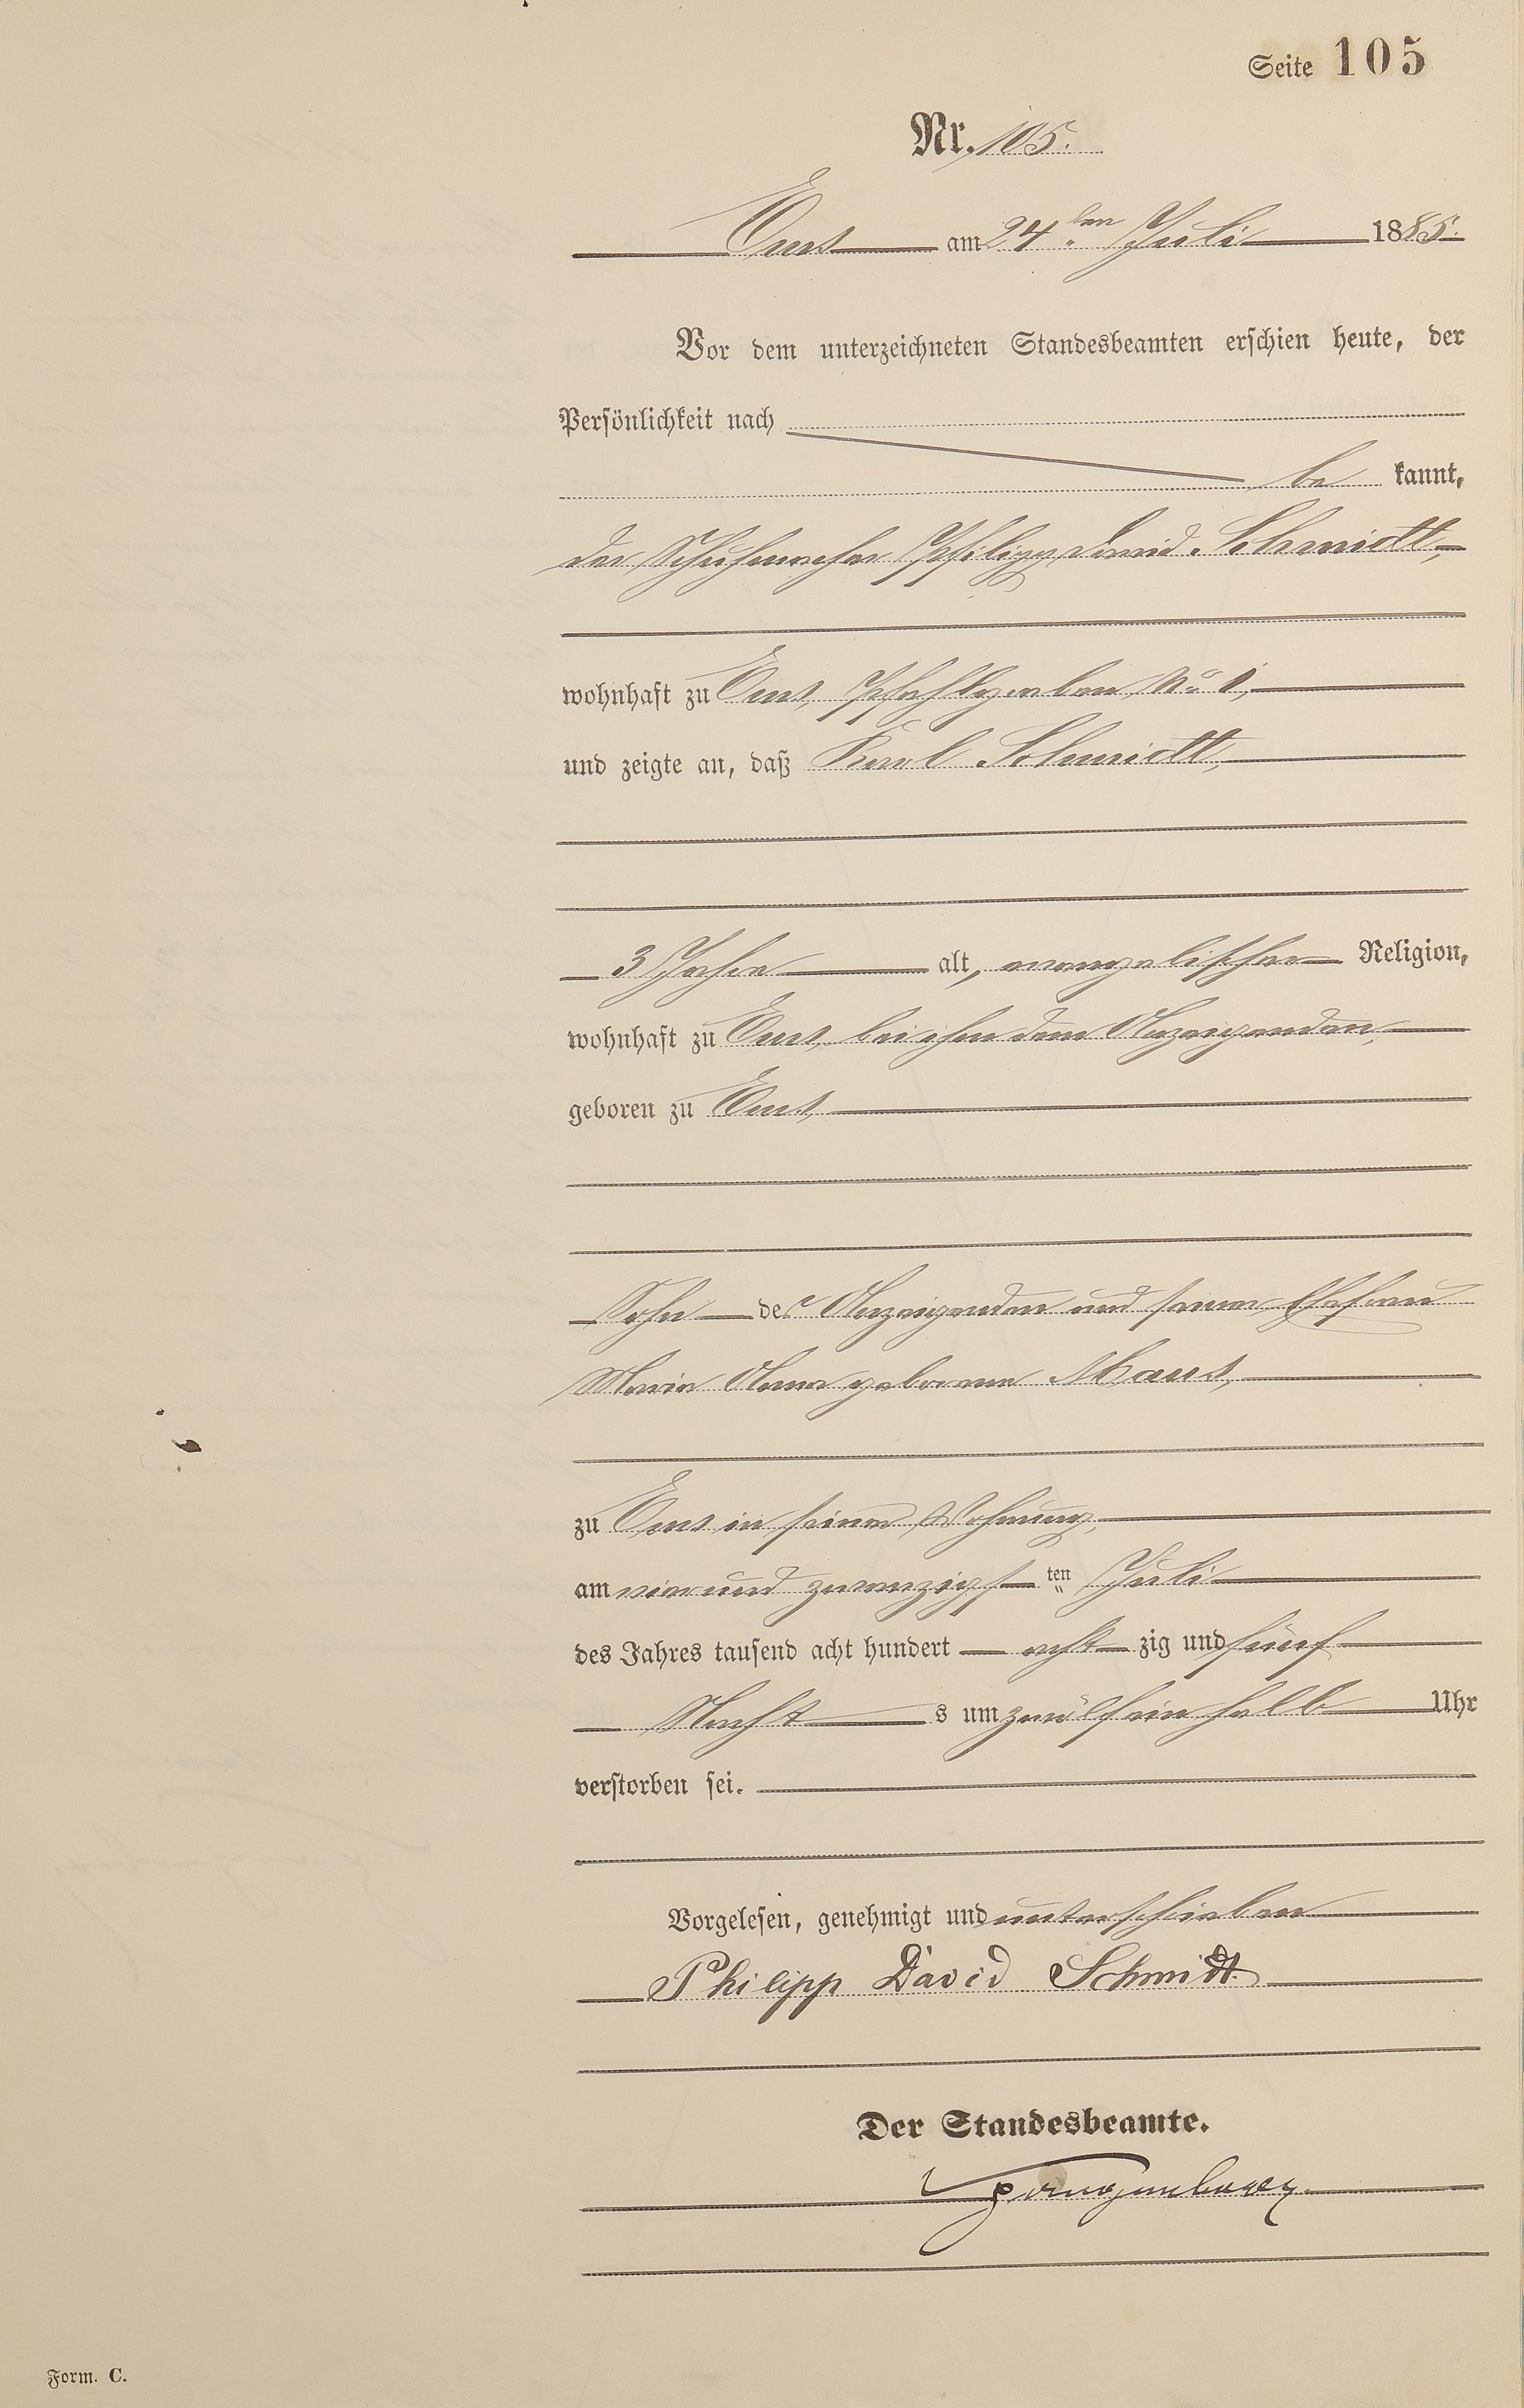 Seite 105
Nr. 105.
Ems am 24ten Juli 1885.
Vor dem unterzeichneten Standesbeamten erschien heute, der
Persönlichkeit nach
be kannt,
der Schuhmacher Philipp David Schmidt,
wohnhaft zu Ems, Pfahlgraben No 1,
und zeigte an, daß Karl Schmidt,
3 Jahre alt, evangelischer Religion,
wohnhaft zu Ems, bei ihm dem Anzeigenden,
geboren zu Ems,
Sohn des Anzeigenden und seiner Ehefrau
Maria Anna geborene Maus,
zu Ems in seiner Wohnung,
am vierundzwanzigsten Juli
des Jahres tausend acht hundert acht zig und fünf
Nacht s um zwölfeinhalb Uhr
verstorben sei.
Vorgelesen, genehmigt und unterschrieben
Philipp David Schmidt
Der Standesbeamte.
Form. C.